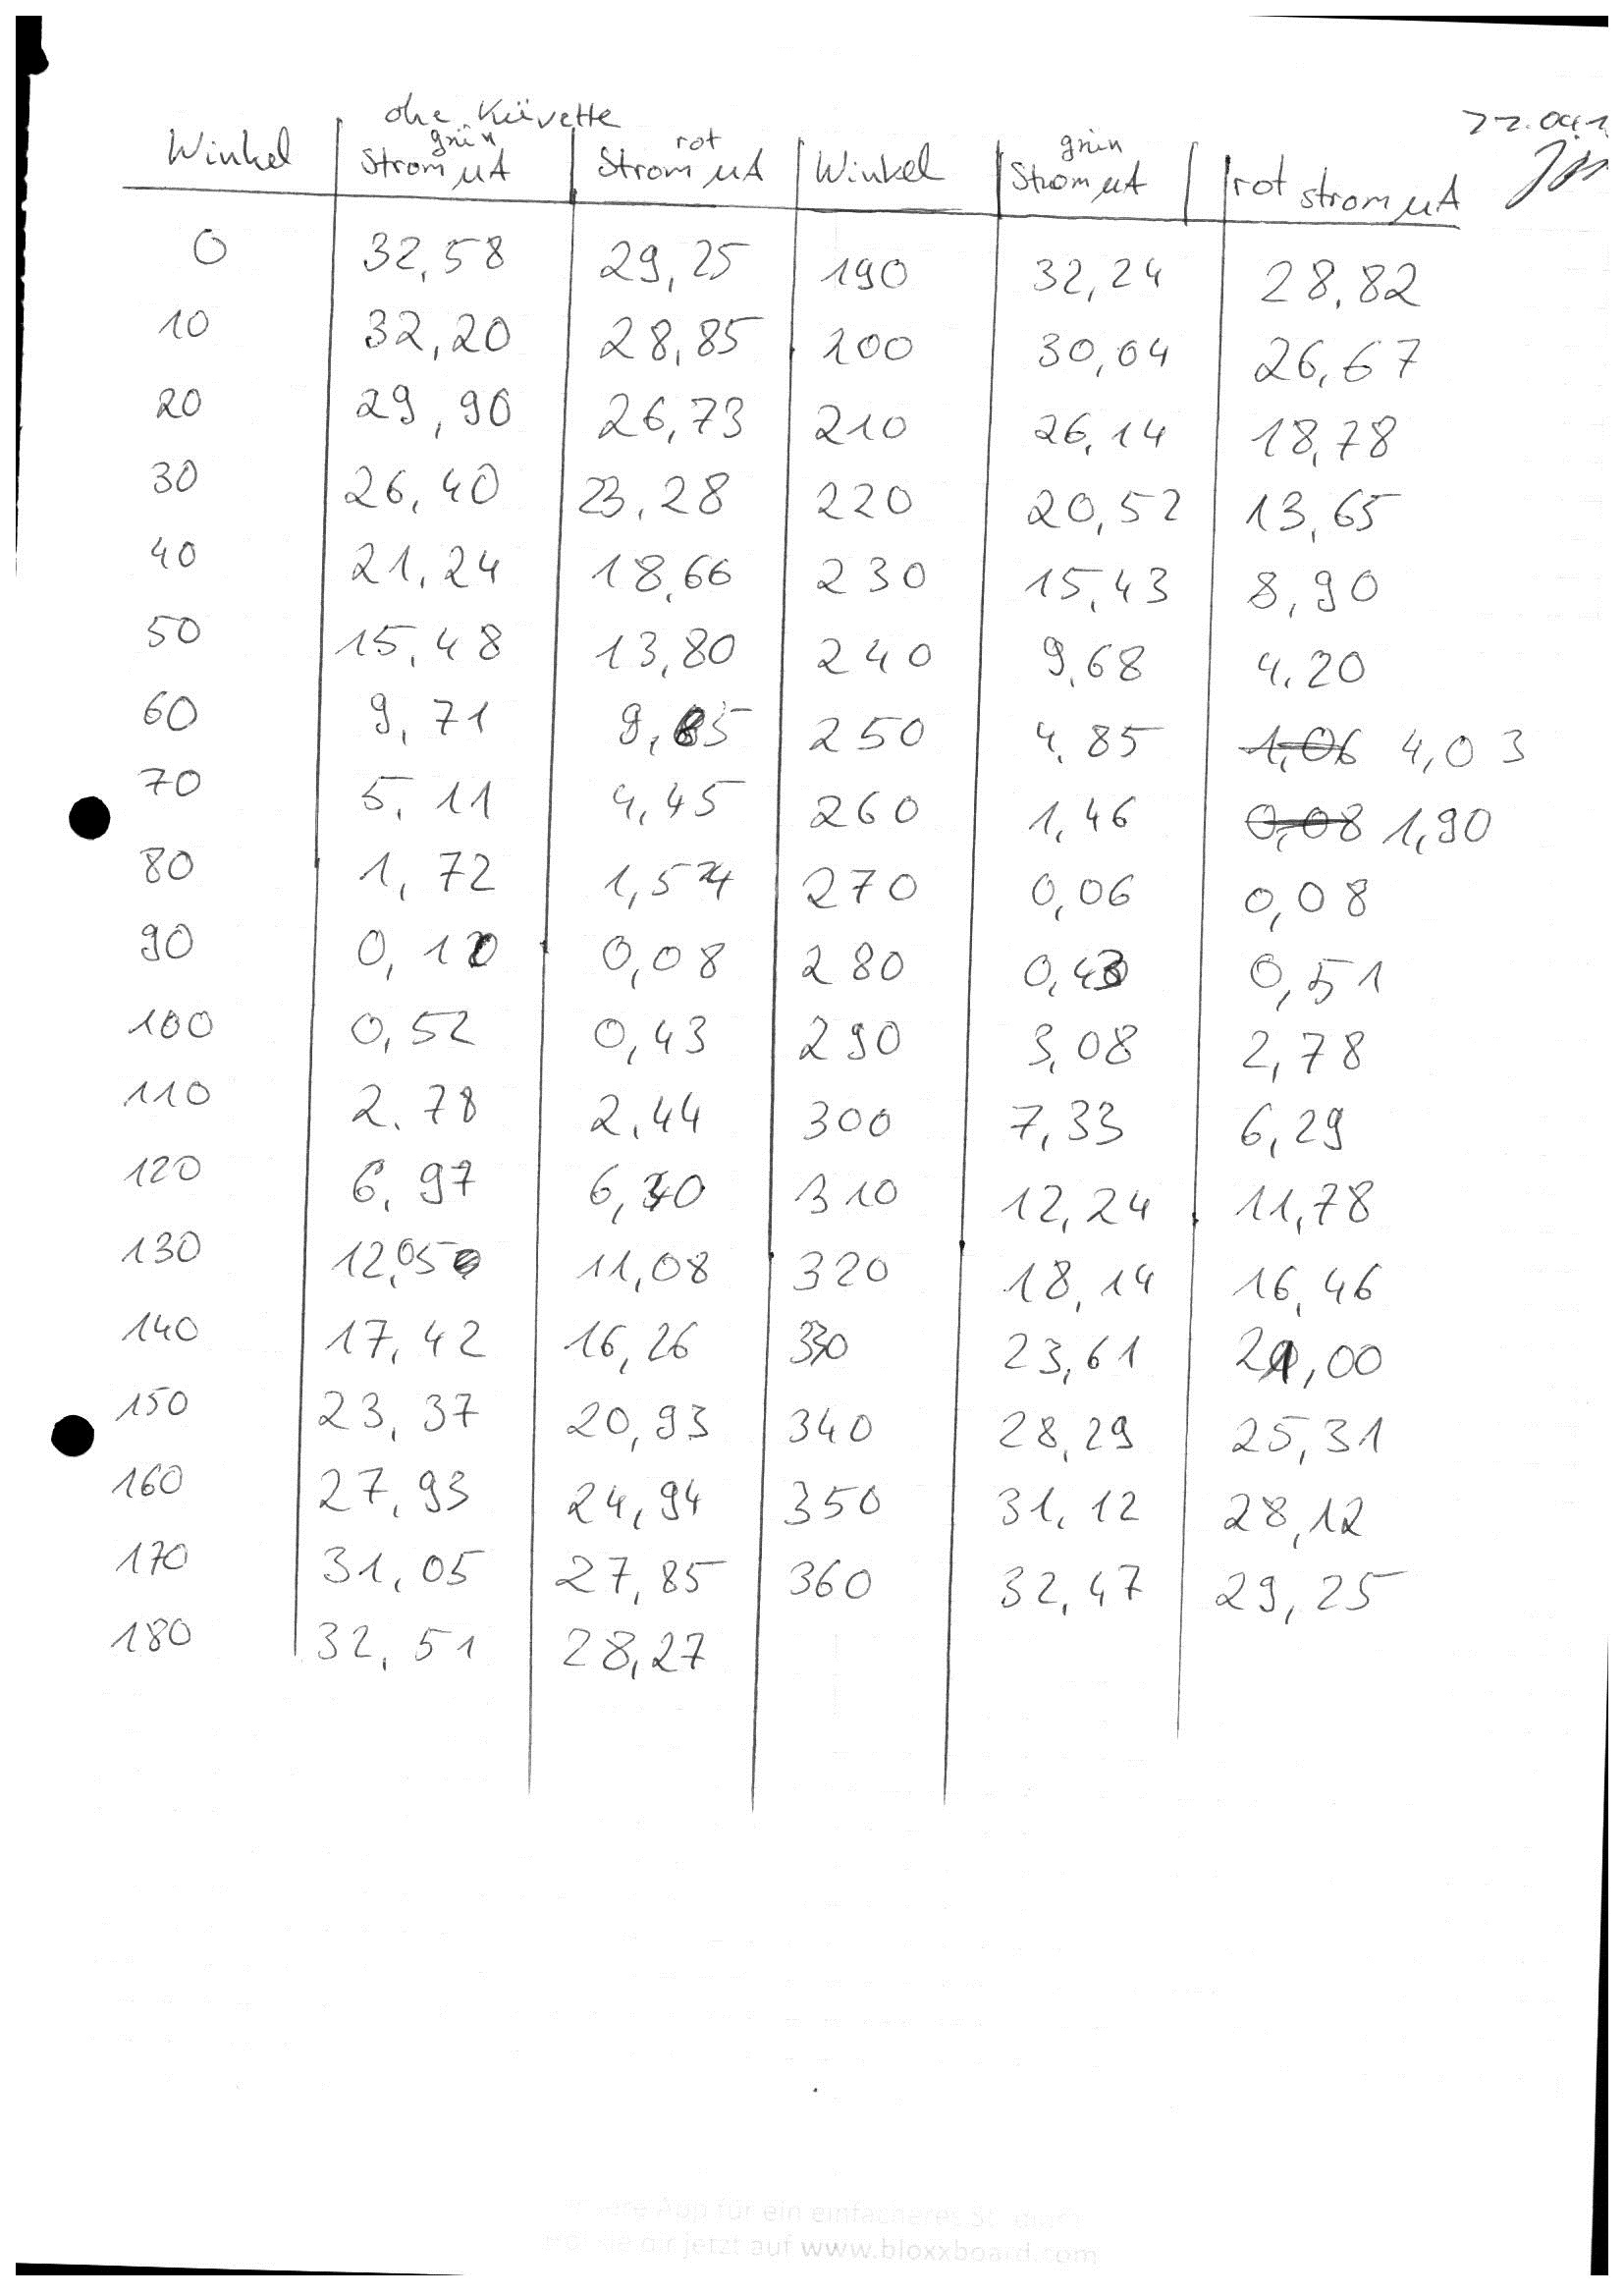 ohe Küvette
22.04.1
Winkel grün Strom µA rot Strom µA Winkel grün Strom µA rot strom µA
0 32,58 29,25 190 32,24 28,82
10 32,20 28,85 200 30,04 26,67
20 29,90 26,73 210 26,14 18,78
30 26,40 23,28 220 20,52 13,65
40 21,24 18,66 230 15,43 8,90
50 15,48 13,80 240 9,68 4,20
60 9,71 9,85 250 4,85 1,06 4,03
70 5,11 4,45 260 1,46 0,08 1,90
80 1,72 1,54 270 0,06 0,08
90 0,10 0,08 280 0,43 0,51
100 0,52 0,43 290 3,08 2,78
110 2.78 2,44 300 7,33 6,29
120 6,97 6,40 310 12,24 11,78
130 12,05 11,08 320 18,14 16,46
140 17,42 16,26 330 23,61 21,00
150 23,37 20,93 340 28,29 25,31
160 27,93 24,94 350 31,12 28,12
170 31,05 27,85 360 32,47 29,25
180 32,51 28,27
App für ein einfacheres
dir jetzt auf www.bloxxboard.com